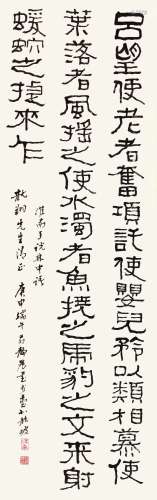 呂望使老者奮項託使嬰兒矜以類相慕使
葉落者風搖之使水濁者魚撓之虎豹之文來射
蝯之捷來乍
淮南子說林中語
先生清正 庚申端午